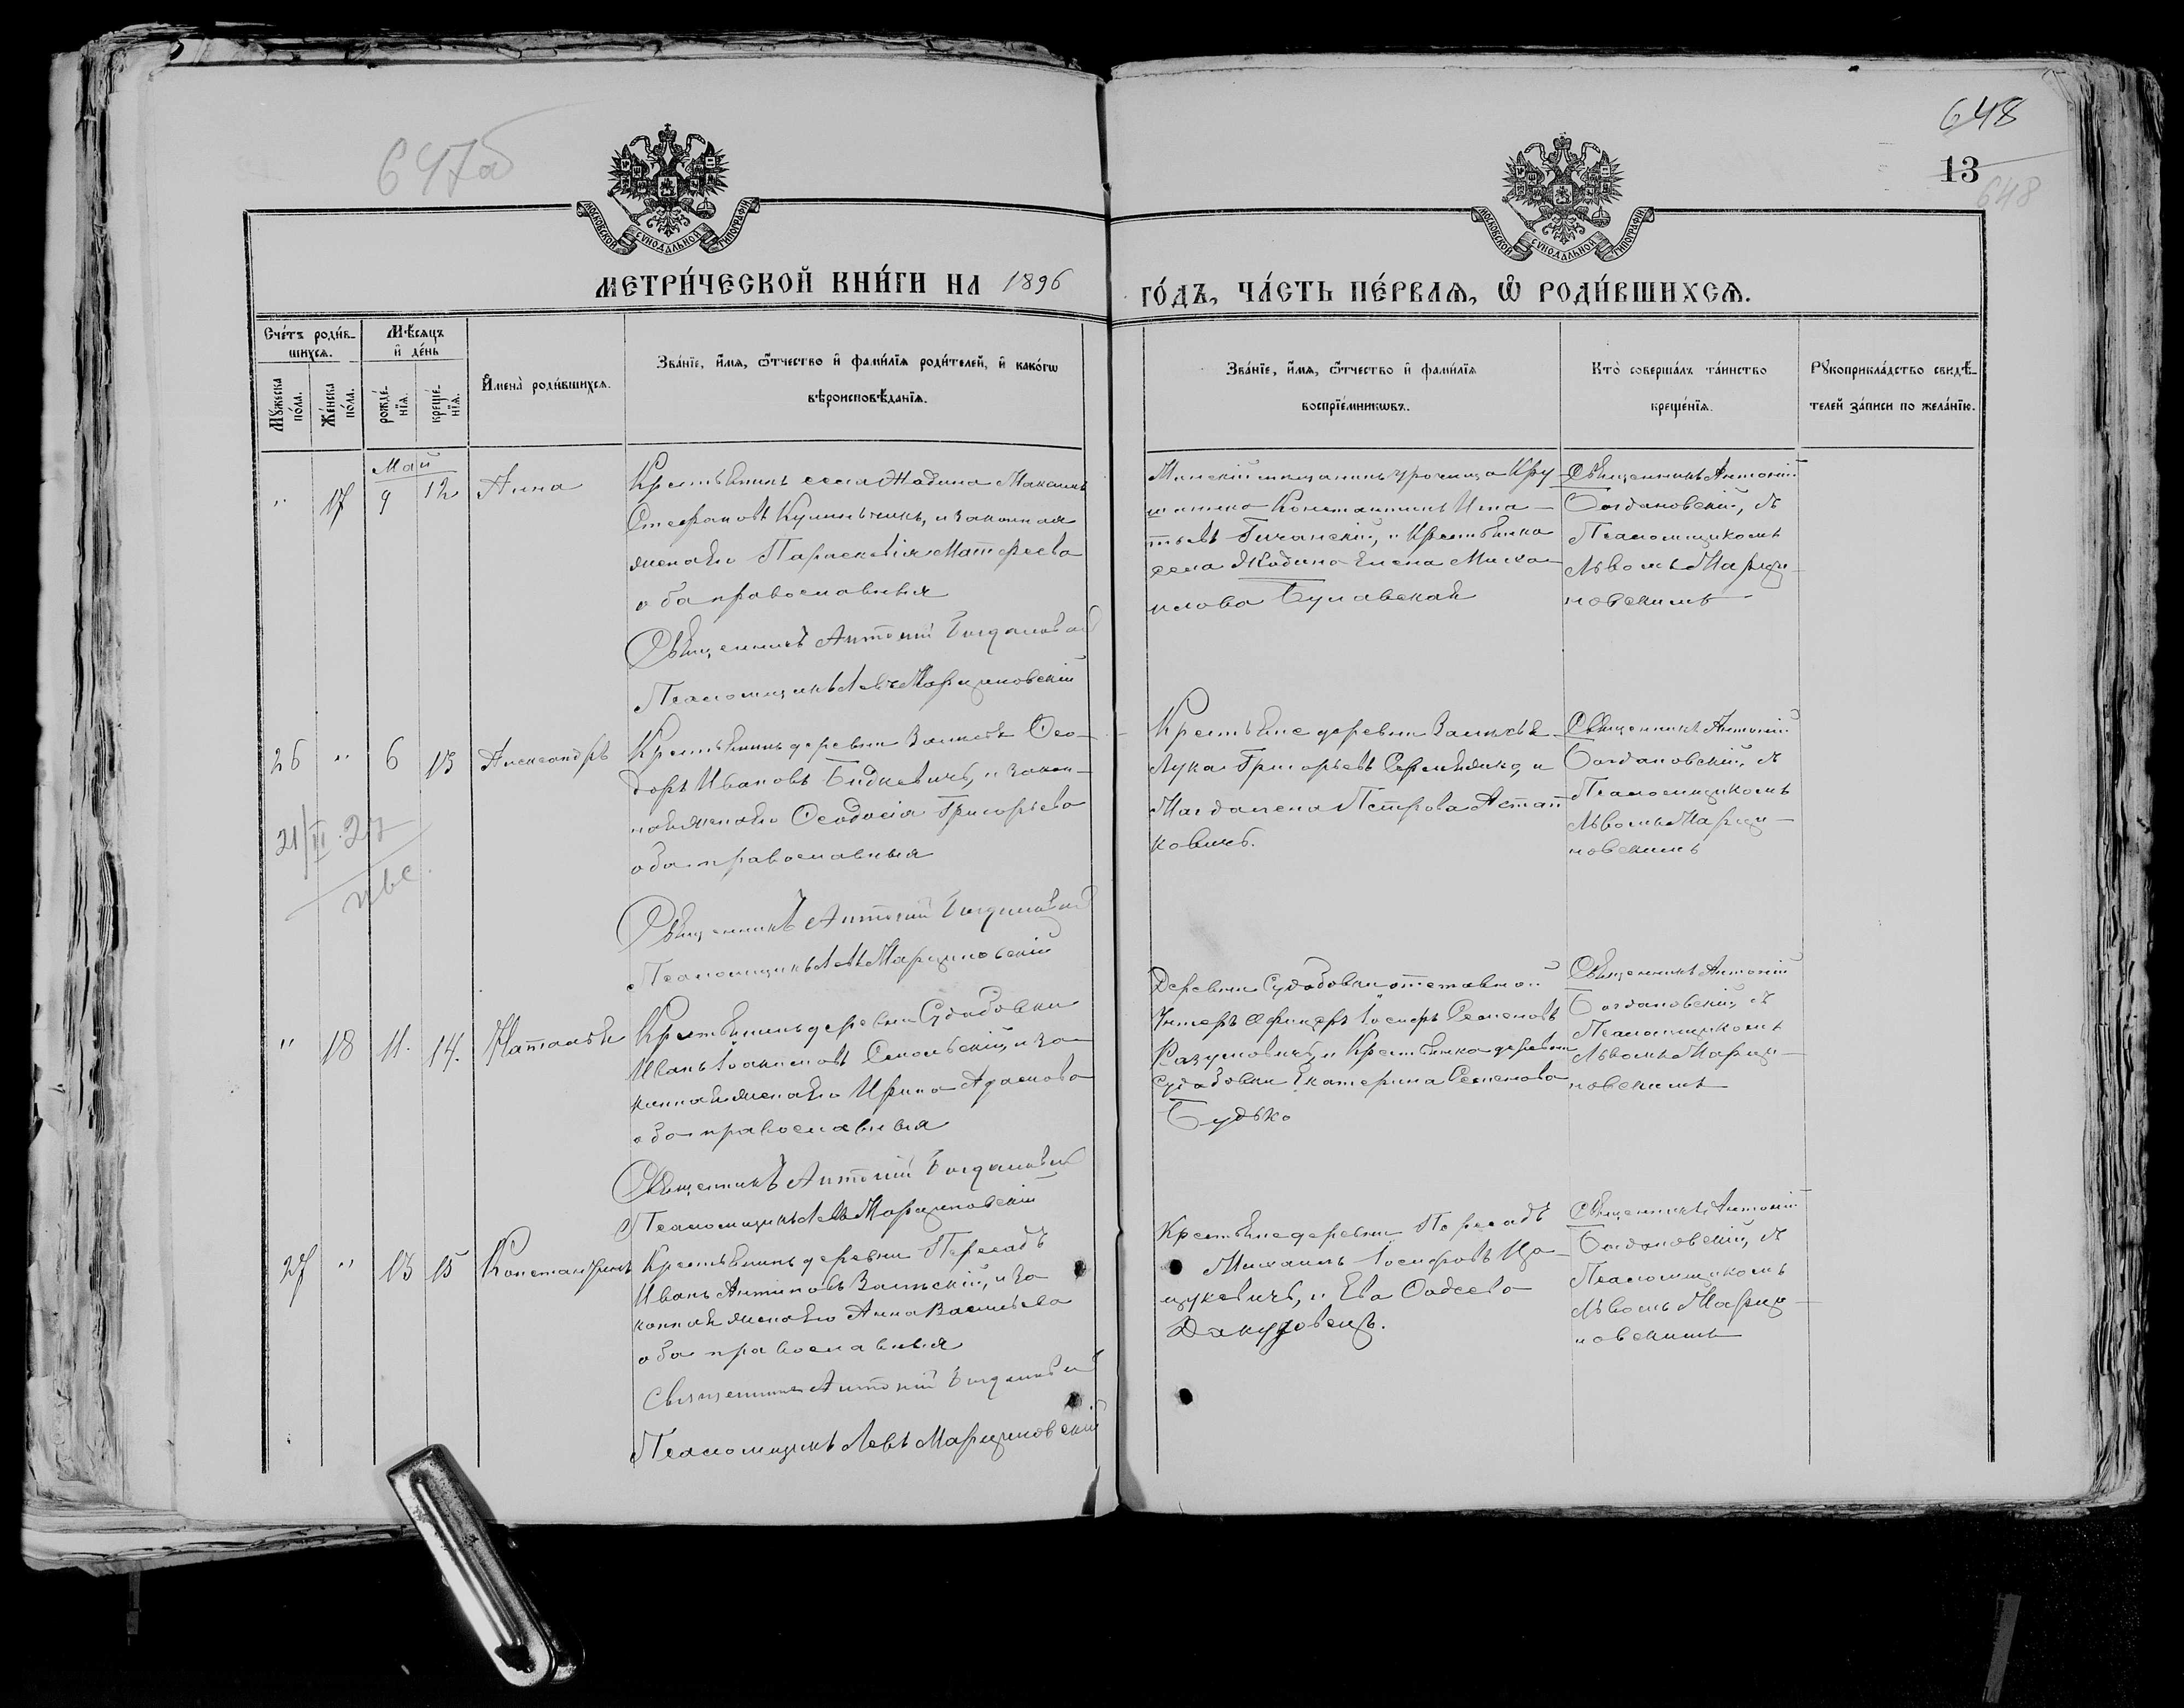 647об
648
13
648
МОСКОВСКОЙ СѴНОДАЛЬНОЙ ТИПОГРАФІИ
МОСКОВСКОЙ СѴНОДАЛЬНОЙ ТИПОГРАФІИ
МЕТРИ́ЧЕСКОЙ КНИ́ГИ НА 1896
ГО́ДЪ, ЧА́СТЬ ПЕ́РВАѦ, Ѡ҆ РОДИ́ВШИХСѦ.
Сче́тъ роди́в-
шихсѧ.
Мѣ́сѧцъ
и҆ де́нь
Мꙋ́жеска
по́ла.
Же́нска
по́ла.
рожде́-
нїѧ.
креще́-
нїѧ.
И҆мена̀ роди́вшихсѧ.
Зва́нїе, и҆́мѧ, ѻ҆́тчество и҆ фами́лїѧ роди́телей, и҆ како́гѡ
вѣроисповѣ́данїѧ.
Зва́нїе, и҆́мѧ, ѻ҆́тчество и҆ фами́лїѧ
воспрїе́мникѡвъ.
Кто̀ соверша́лъ та́инство
креще́нїѧ.
Рꙋкоприкла́дство свидѣ́-
телей за́писи по жела́нїю.
Май
" 17 9 12 Анна
Крестьянинъ села Жодина Максимъ
Стефановъ Кулинчикъ, и законная
жена его Параскевія Матфеева
оба православныя
Священникъ Антоній Богдановскій
Псаломщикъ Левъ Марциновскій
Минскій мѣщанинъ урочища Кру-
Константинъ Игна-
тьевъ Гичанскій, и крестьянка
села Жодина Елена Миха-
илова Булавская
Священникъ Антоній
Богдановскій, съ
Псаломщикомъ
Львомъ Марци-
новскимъ
26 " 6 13 Александръ
21/II 27
Крестьянинъ деревни Ѳео-
доръ Ивановъ Бидкевичъ, и закон-
ная жена его Ѳеодосія Григорьева
оба православныя
Священникъ Антоній Богдановскій
Псаломщикъ Левъ Марциновскій
Крестьяне деревни
Лука Григорьевъ Сермяжко, и
Магдалена Петрова Астап-
ковичъ.
Священникъ Антоній
Богдановскій, съ
Псаломщикомъ
Львомъ Марци-
новскимъ
" 18 11. 14. Наталія
Крестьянинъ деревни Судобовки
Иванъ Іоакимовъ Смольскій, и за-
конная жена его Ирина Адамова
оба православныя
Священникъ Антоній Богдановскій
Псаломщикъ Левъ Марциновскій
Деревни Судобовки отставной
Унтеръ Офицеръ Іосифъ Семеновъ
Разумовичъ, и крестьянка деревни
Судобовки Екатерина Семенова
Будько
Священникъ Антоній
Богдановскій, съ
Псаломщикомъ
Львомъ Марци-
новскимъ
27 " 13 15 Константинъ
Крестьянинъ деревни Пересадъ
Иванъ Антиповъ Зальскій, и за-
конная жена его Анна Васильева
оба православныя
Священникъ Антоній Богдановскій
Псаломщикъ Левъ Марциновскій
Крестьяне деревни Пересадъ
Михаилъ Іосифовъ Ца-
цукевичъ, и Ева Фадеева
Священникъ Антоній
Богдановскій, съ
Псаломщикомъ
Львомъ Марци-
новскимъ